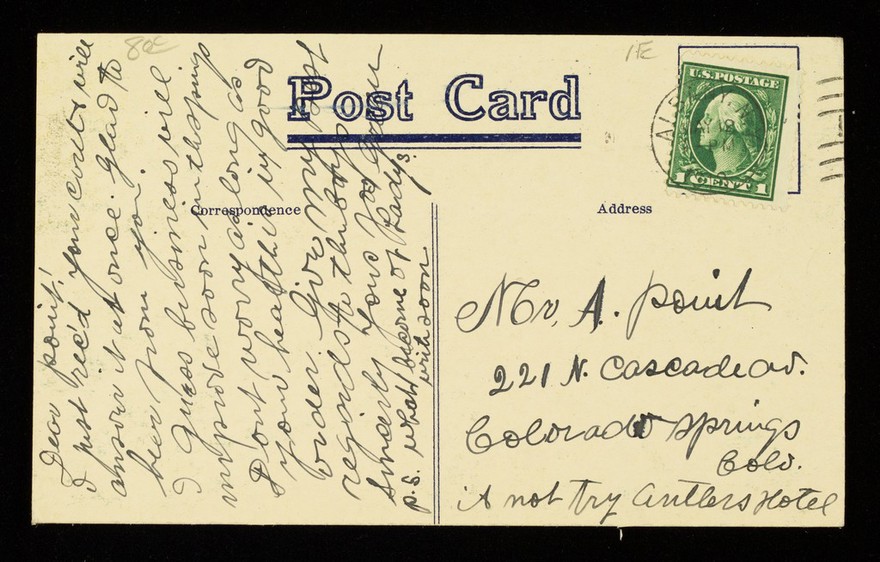 80¢
1E
Post Card
U.S. POSTAGE
1 CENT 1
Correspondence
Address
Dear point!
I just rec'd your card & will
answer it at once. Glad to
hear from you.
I guess business will
improve soon in the springs
Dont worry as long as
your health is in good
order. Give my best
regards to the boys
Sincerly Yours Joe
p.s. what become of Lardys.
writ soon
Mr. A. point
221 N. Cascade av.
Colorado springs
Colo.
if not try antlers Hotel